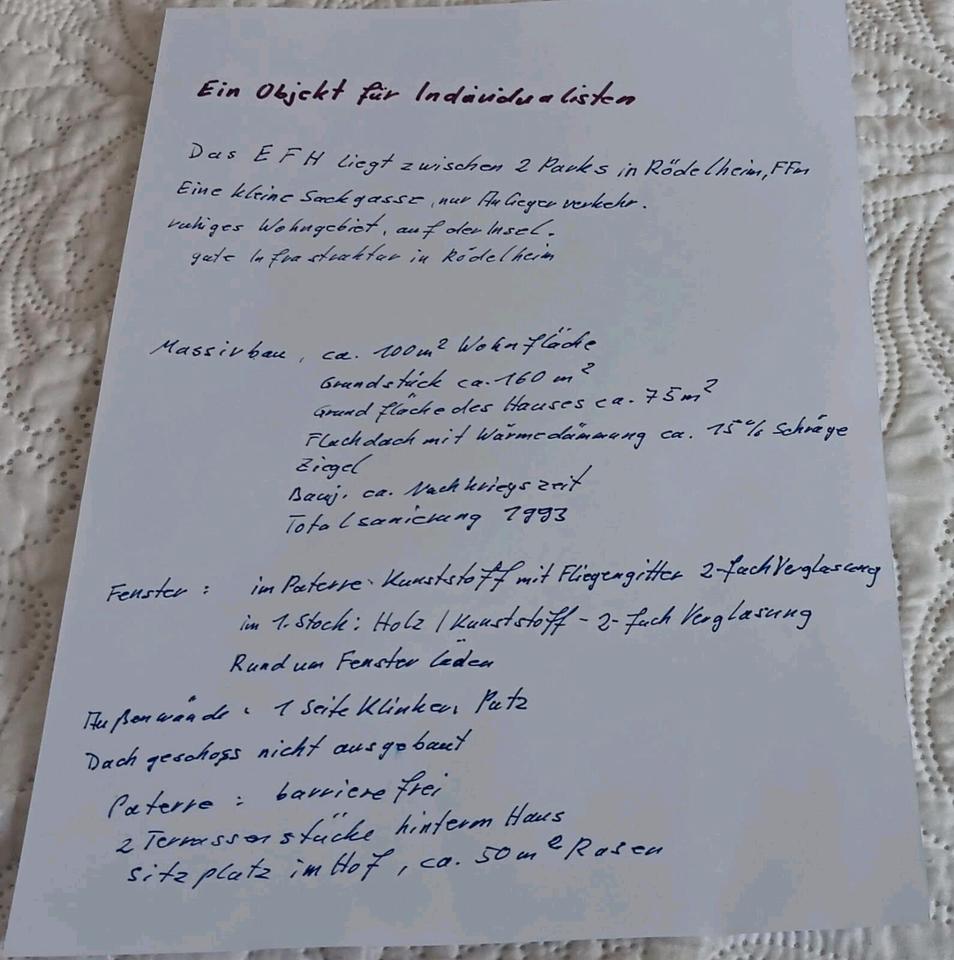 Ein Objekt für Individualisten
Das EFH liegt zwischen 2 Parks in Rödelheim, FFm
Eine kleine Sackgasse, nur Anliegerverkehr.
ruhiges Wohngebiet, auf der Insel.
gute Infrastruktur in Rödelheim
Massivbau, ca. 100 m² Wohnfläche
Grundstück ca. 160 m²
Grundfläche des Hauses ca. 75 m²
Flachdach mit Wärmedämmung ca. 15% Schräge
Ziegel
Bauj. ca. Nachkriegszeit
Totalsanierung 1993
Fenster: im Paterre. Kunststoff mit Fliegengitter 2-fach Verglasung
im 1. Stock: Holz / Kunststoff - 2-fach Verglasung
Rundum Fensterläden
Außenwände: 1 Seite Klinker, Putz
Dachgeschoss nicht ausgebaut
Paterre: barrierefrei
2 Terrassenstücke hinterm Haus
Sitzplatz im Hof, ca. 50 m² Rasen